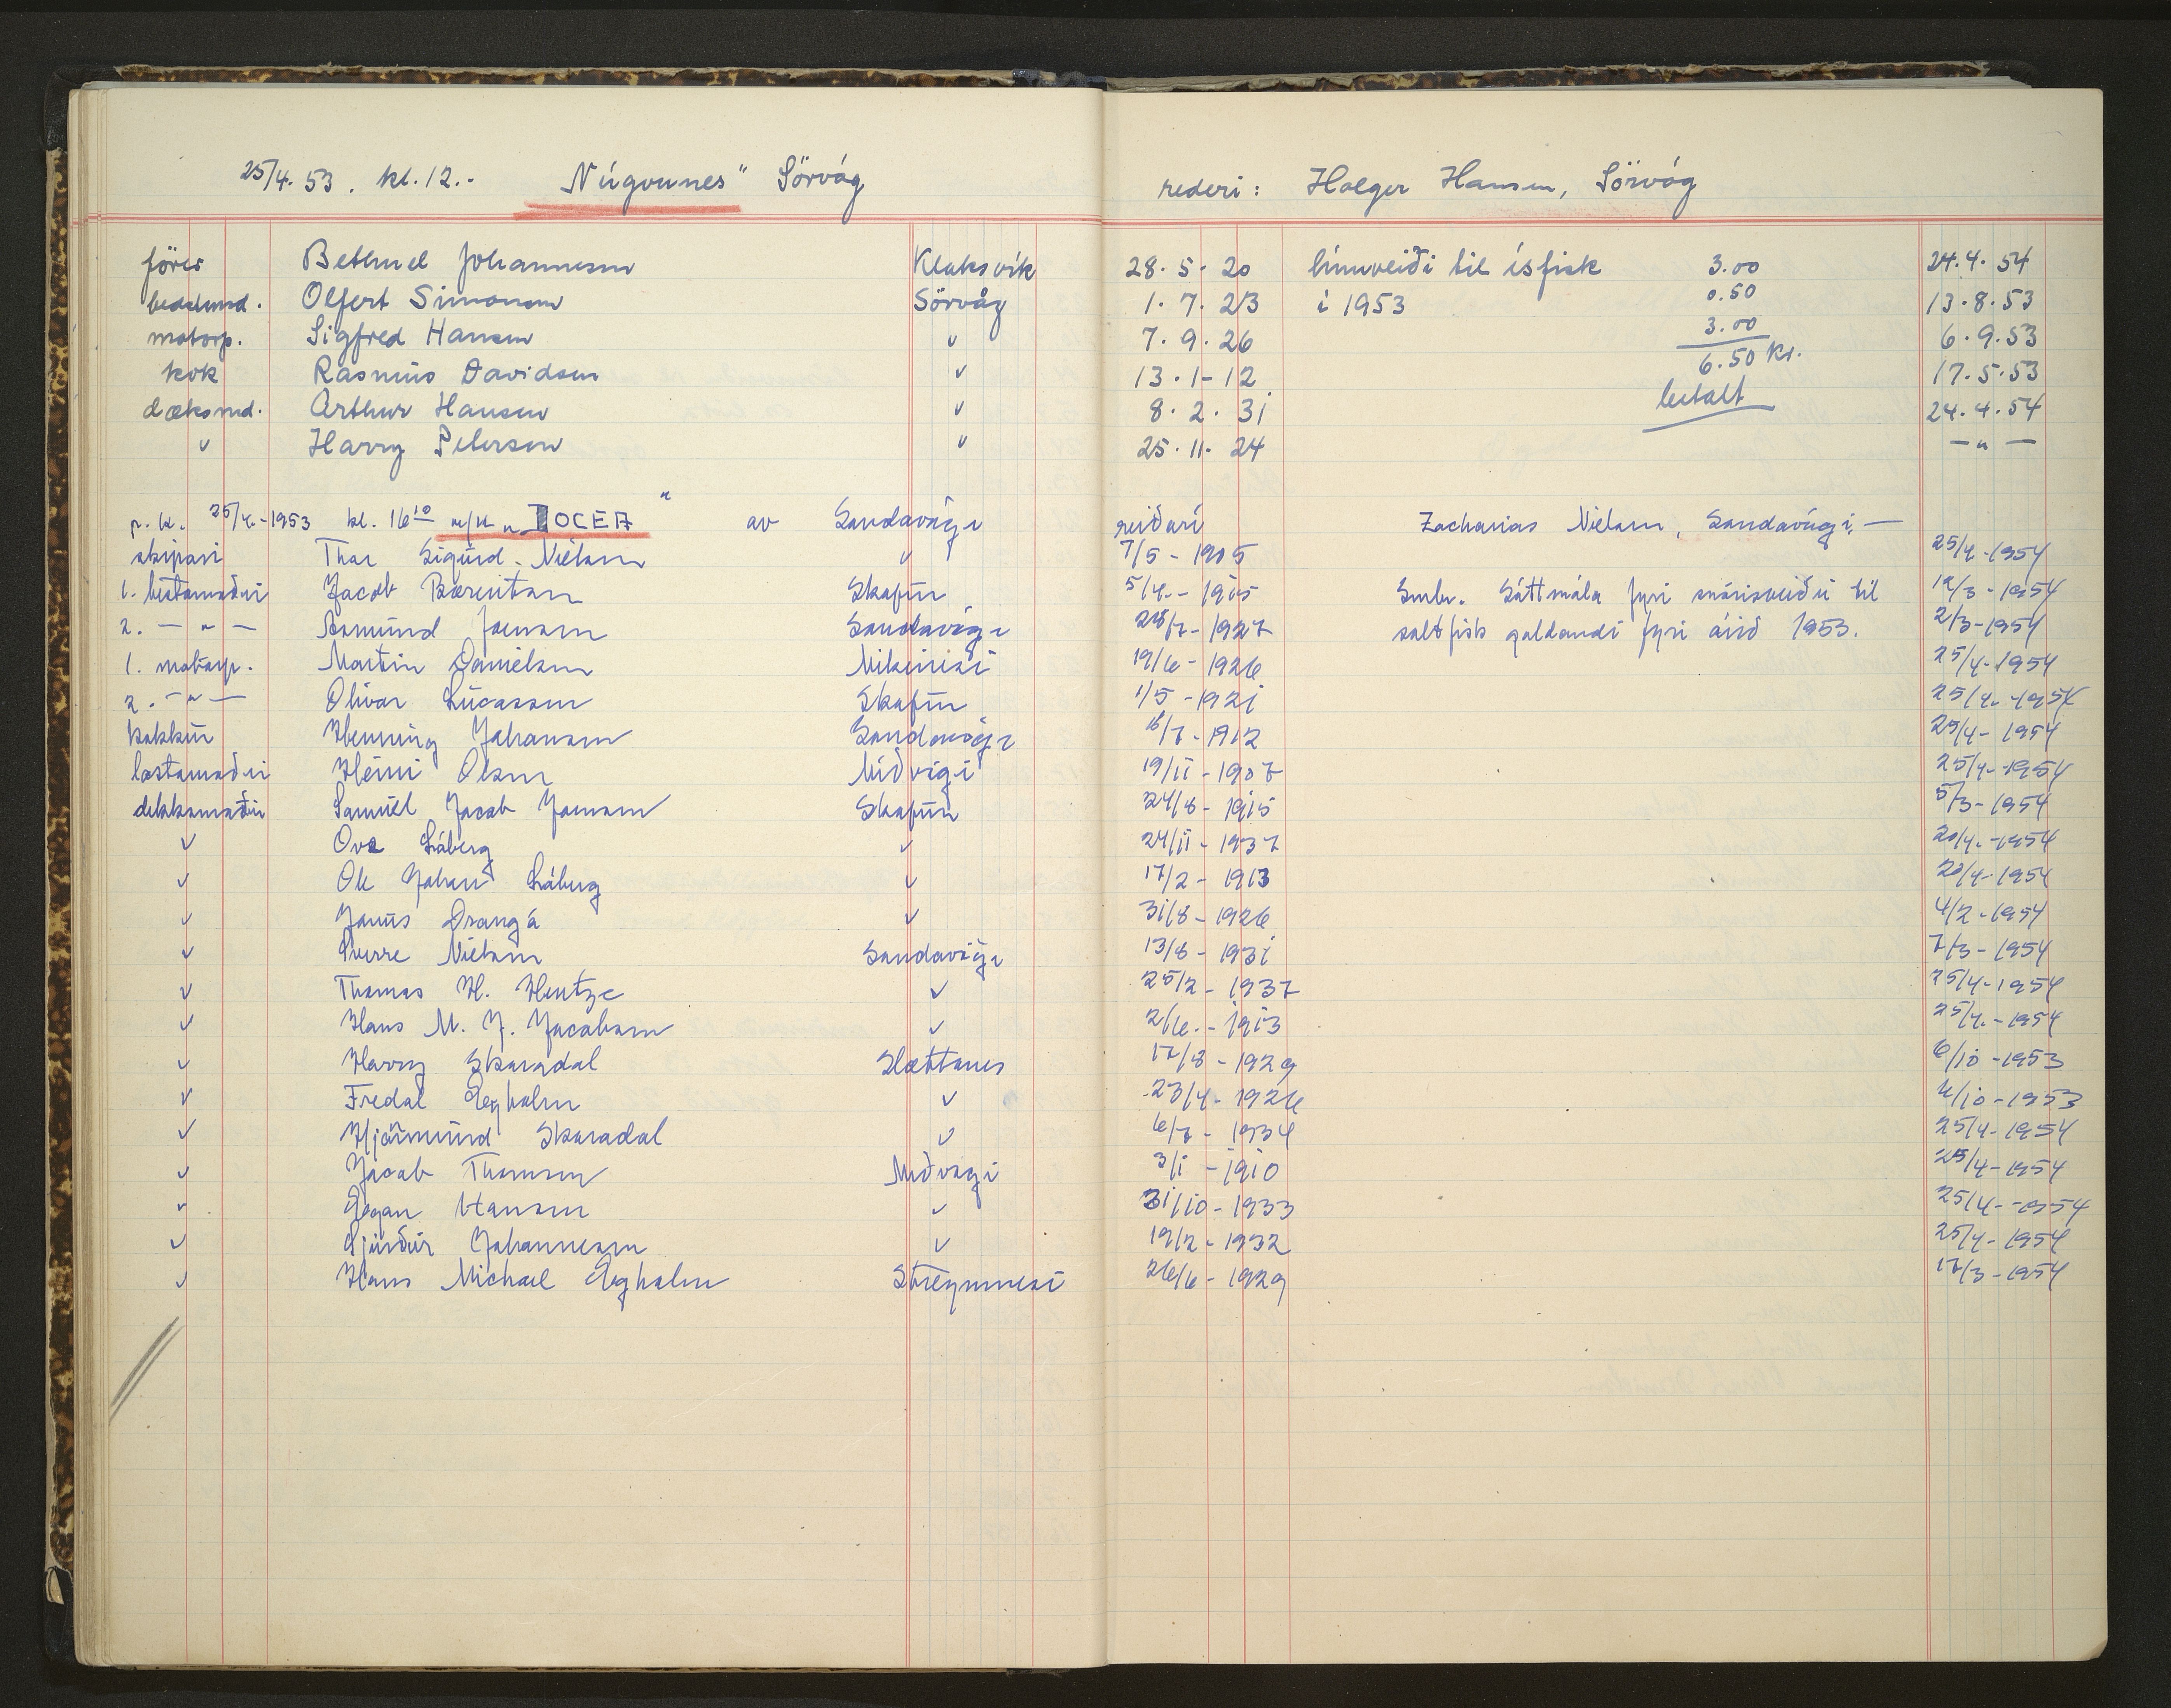 25/4.53. kl. 12.- Núgvunes" Sörvág rederi: Holger Hansen, Sörvág
förer Bethuel Johannesen Klaksvík 28.5.20 línuveiði til ísfisk 3.00 24.4.54
bedstmd. Olfert Simonsen Sörvåg 1.7.23 í 1953 0.50 13.8.53
motorp. Sigfred Hansen " 7.9.26 3.00 6.9.53
kok Rasmus Davidsen " 13.1-12 6.50 kr. 17.5.53
dæksmd. Arthur Hansen " 8.2.31 betalt 24.4.54
" Harry Petersen " 25.11.24 —"—
25/4.-1953 kl. 16¹⁰ m/k „JOCEA" av Sandavági reiðarí Zacharias Nielsen, Sandavági.—
skipari Thor Sigurd Nielsen " 7/5-1905 25/4-1954
1. bestamaður Jacob Bærentsen Skopun 5/4.-1915 Smbr. Sáttmála fyri snørisveiðu til 12/3-1954
2. —"— Asmund Joensen Sandavági 28/7-1927 saltfisk galdandi fyri árið 1953. 2/3-1954
1. motorp. Martin Danielsen Mikinesi 19/6-1926 25/4-1954
2. —"— Olivar Lucassen Skopun 1/5-1921 25/4.-1954
kokkur Henning Johansen Sandavági 16/7-1912 25/4-1954
lastamaður Heini Olsen Miðvági 19/11-1907 25/4-1954
dekksmaður Samuel Jacob Joensen Skopun 24/8-1915 5/3-1954
" Ove Láberg " 24/11-1937 20/4.-1954
" Ole Johan Láberg " 17/2-1913 20/4-1954
" Janus Drangá " 31/8-1926 4/2-1954
" Sverre Nielsen Sandavági 13/8-1931 7/3-1954
" Thomas H. Hentze " 25/2-1937 25/4-1954
" Hans M. J. Jacobsen " 2/6.-1913 25/4.-1954
" Harry Skaradal Slættanes 17/8-1929 6/10-1953
" Fredal Egholm " 23/4-1926 4/10-1953
" Hjørmund Skaradal " 6/7-1934 25/4-1954
" Jacob Thomsen Miðvági 3/1-1910 25/4-1954
" Hansen " 31/10-1933 25/4-1954
" Sjúrður Johannesen " 19/2-1932 25/4-1954
" Hans Michael Egholm Streymnesi 26/6-1929 17/3-1954